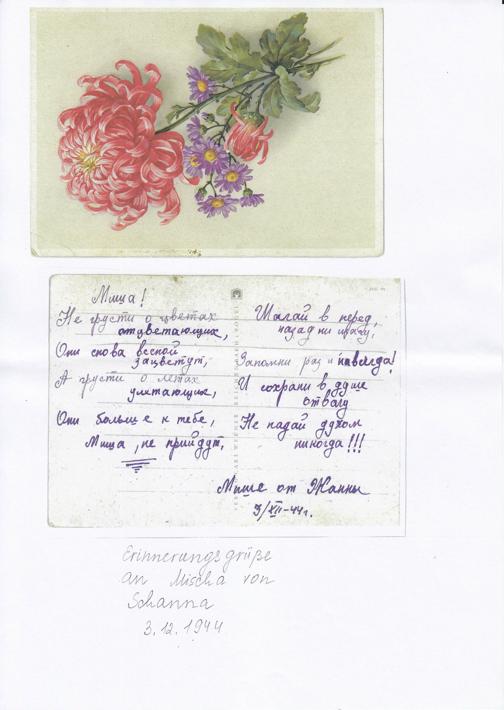 Миша!
Не грусти о цветах
отцветающих,
Они снова весной
зацветут,
А грусти о летах
улетающих,
Они больше к тебе,
Миша, не прийдут,
Шагай в перед,
назад ни шагу,
Запомни раз и навсегда!
И сохрани в душе
отвагу
Не падай духом
никогда!!!
Мише от Жанны
3/XII-44г.
Erinnerungsgrüße
an Mischa von
Schanna
3.12.1944